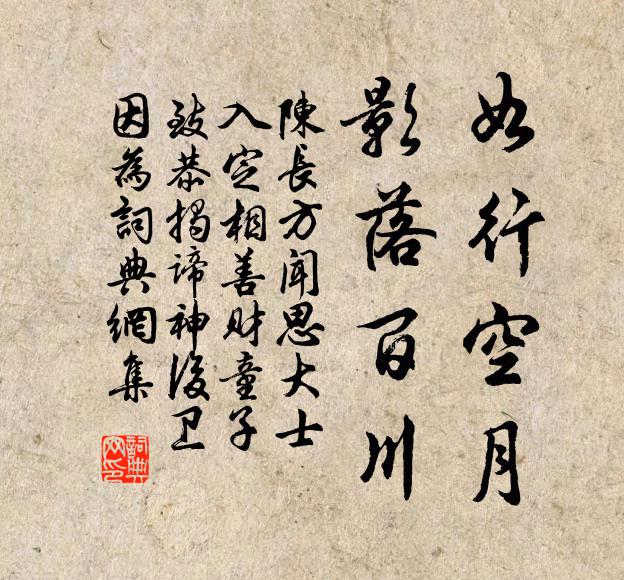 如行空月
影落百川
陳長方聞思大士
入定相善財童子
致恭揭諦神後卫
因為詞典網集
詞典网印